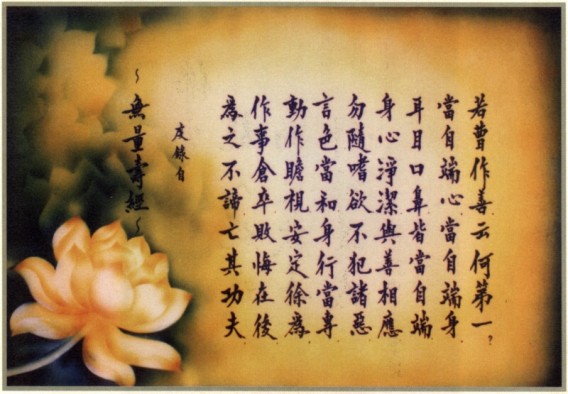 若曹作善云何第一?
當自端心當自端身
耳目口鼻皆當自端
身心淨潔與善相應
勿隨嗜欲不犯諸惡
言色當和身行當專
動作瞻視安定徐為
作事倉卒敗悔在後
為之不諦亡其功夫
度錄自
~無量壽經~